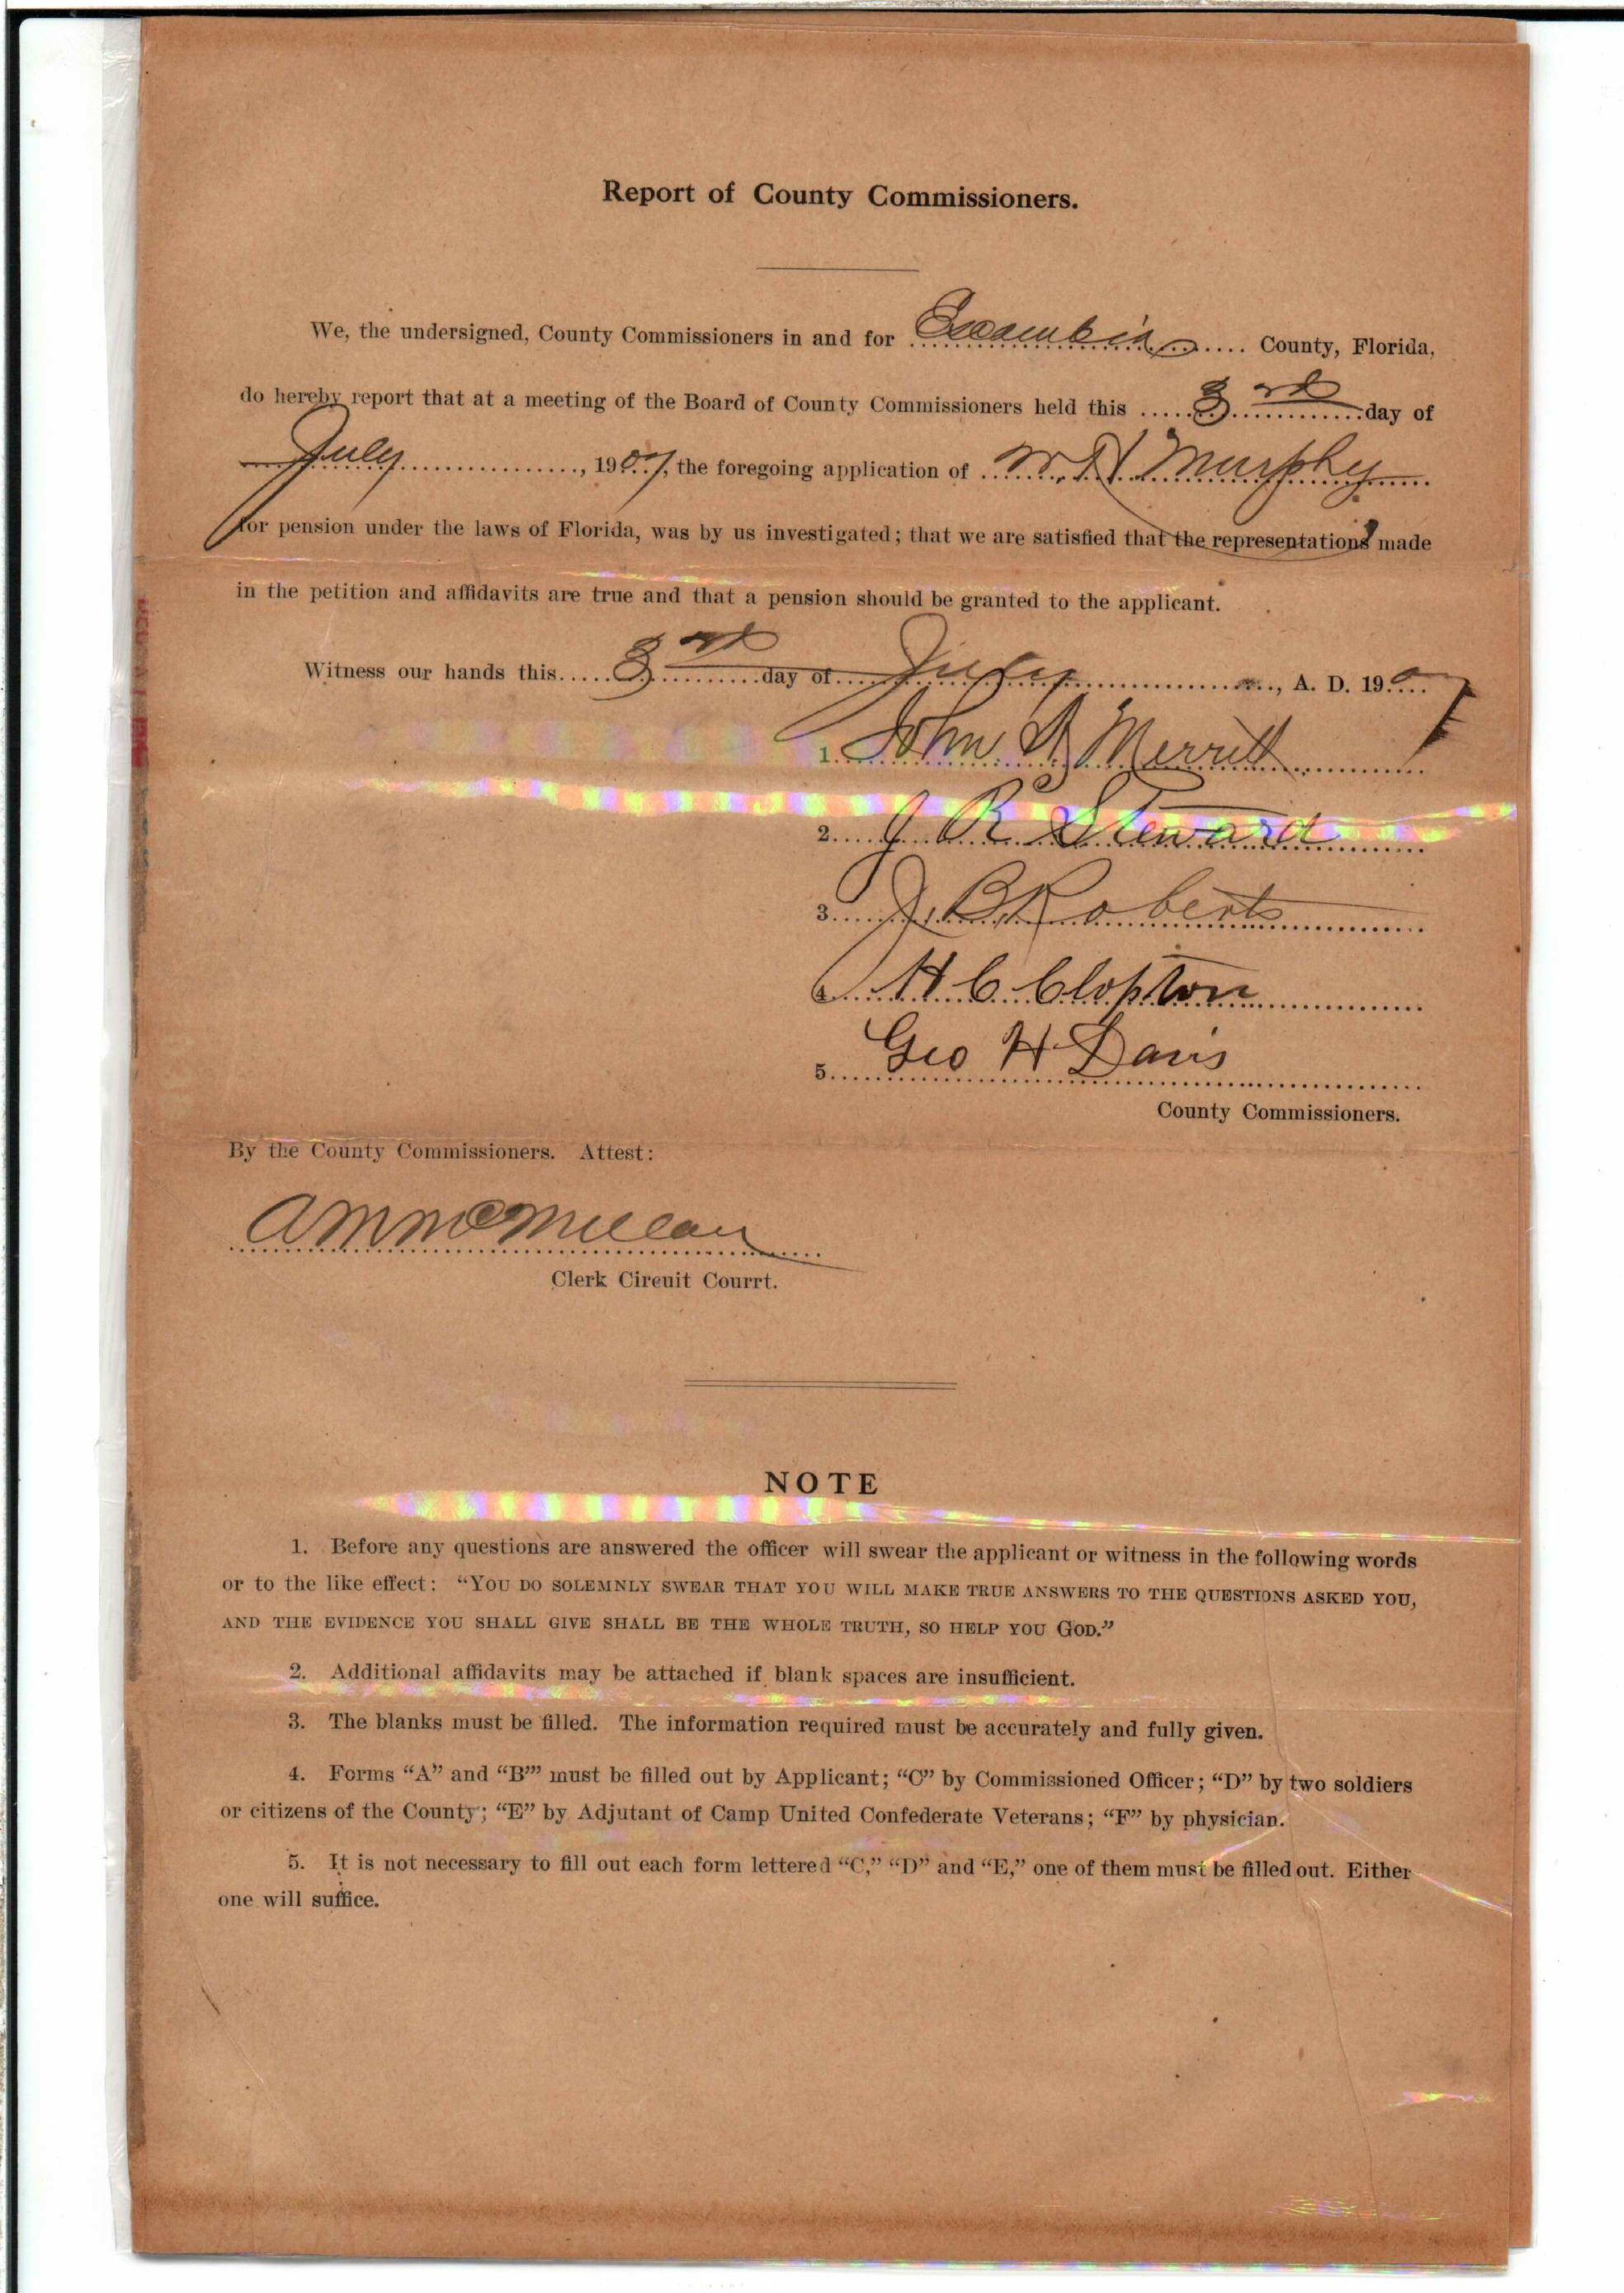 Report of County Commissioners.
We, the undersigned, County Commissioners in and for Escambia County, Florida,
do hereby report that at a meeting of the Board of County Commissioners held this 3rd day of
July, 1907, the foregoing application of W. H. Murphy
for pension under the laws of Florida, was by us investigated; that we are satisfied that the representations made
in the petition and affidavits are true and that a pension should be granted to the applicant.
Witness our hands this 3rd day of July, A. D. 1907
1. John A Merritt
2. J R Steward
3. J. B Roberts
4. H C Clopton
5. Geo H Davis
County Commissioners.
By the County Commissioners. Attest:
A M McMillan
Clerk Circuit Courrt.
NOTE
1. Before any questions are answered the officer will swear the applicant or witness in the following words
or to the like effect: “YOU DO SOLEMNLY SWEAR THAT YOU WILL MAKE TRUE ANSWERS TO THE QUESTIONS ASKED YOU,
AND THE EVIDENCE YOU SHALL GIVE SHALL BE THE WHOLE TRUTH, SO HELP YOU GOD.”
2. Additional affidavits may be attached if blank spaces are insufficient.
3. The blanks must be filled. The information required must be accurately and fully given.
4. Forms “A” and “B”’ must be filled out by Applicant; “C” by Commissioned Officer; “D” by two soldiers
or citizens of the County; “E” by Adjutant of Camp United Confederate Veterans; “F” by physician.
5. It is not necessary to fill out each form lettered “C,” “D” and “E,” one of them must be filled out. Either
one will suffice.